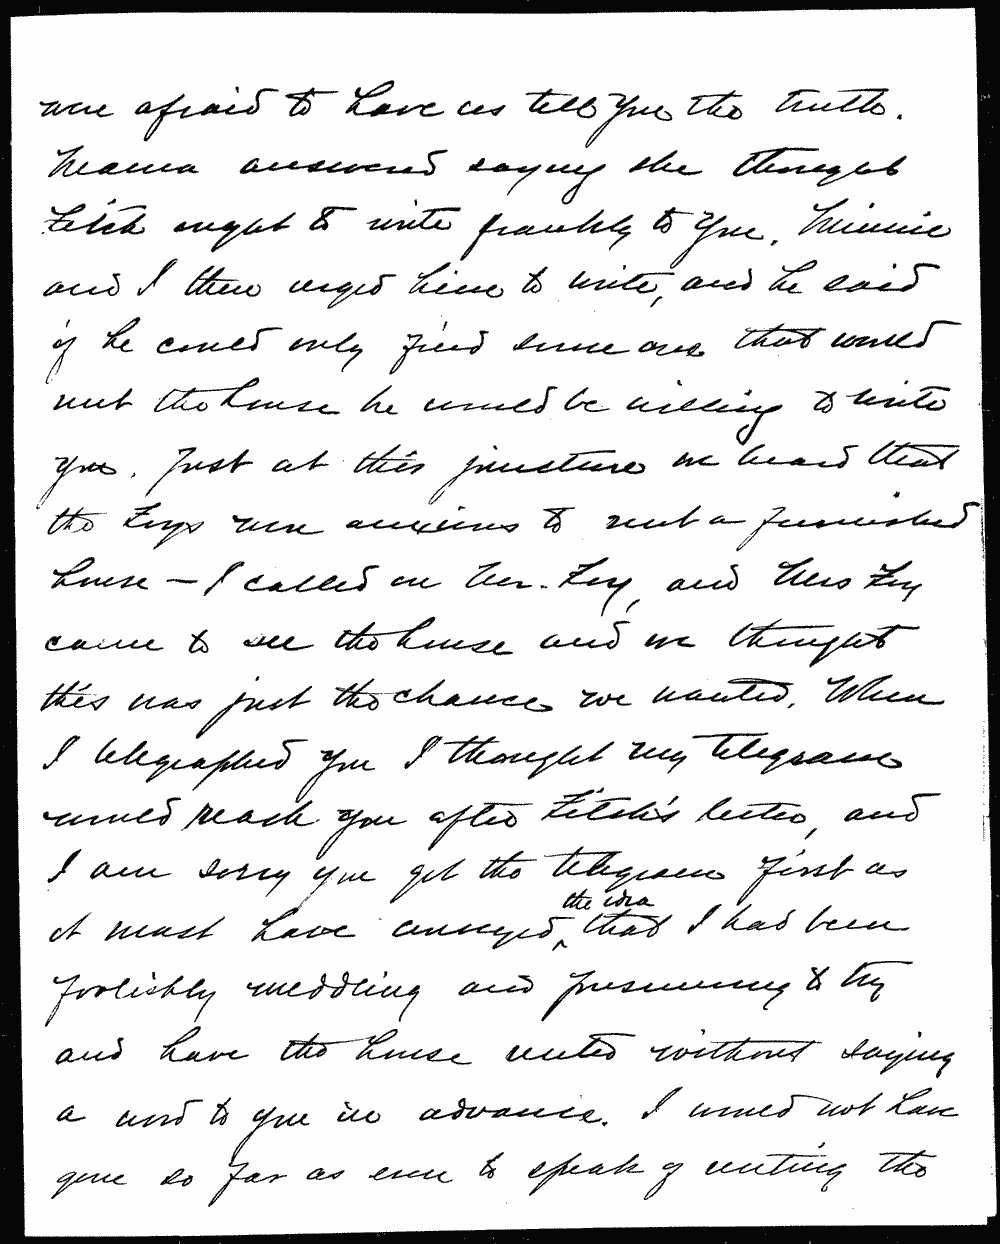 were afraid to have us tell you the truth.
Mama answered saying she thought
Fitch ought to write frankly to you. Minnie
and I then urged him to write, and he said
if he could only find some one that would
rent the house he would be willing to write
you. Just at this juncture we heard that
the Foys were anxious to rent a furnished
house — I called on Mr. Foy, and Mrs Foy
came to see the house and we thought
this was just the chance we wanted. When
I telegraphed you I thought my telegram
would reach you after Fitch's letter, and
I am sorry you got the telegram first as
it must have conveyed the idea that I had been
foolishly meddling and presuming to try
and have the house rented without saying
a word to you in advance. I would not have
gone so far as even to speak of renting the